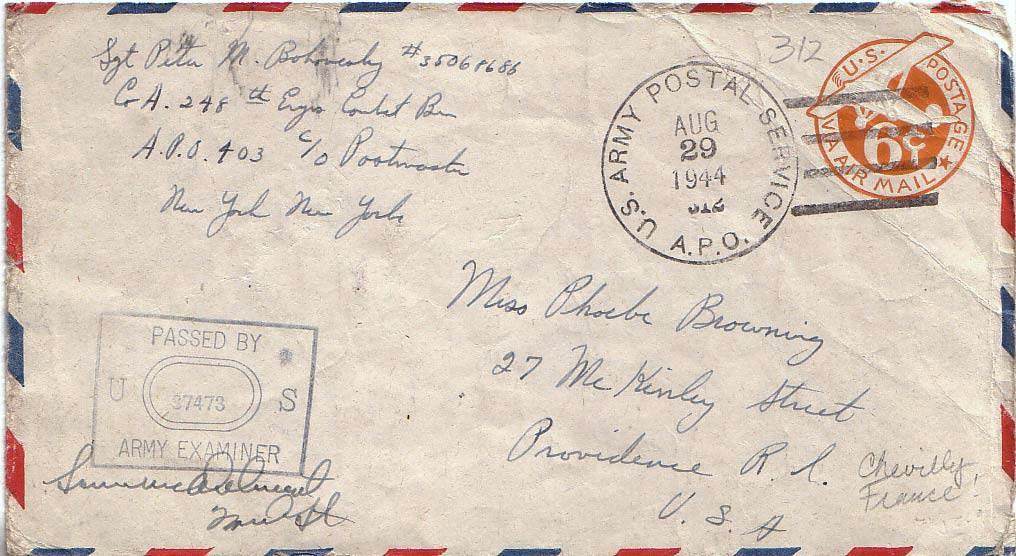 Sgt Peter M. #35068686
Co A. 248th Engrs Combat Bn
A.P.O. 403 c/o Postmaster
New York New York
312
U.S. POSTAGE
VIA AIR MAIL
6¢
U.S. ARMY POSTAL SERVICE
AUG
29
1944
312
A.P.O.
Miss Phoebe Browning
27 McKinley Street
Providence R. I.
U. S. A
Chevilly,
France!
PASSED BY
U 37473 S
ARMY EXAMINER